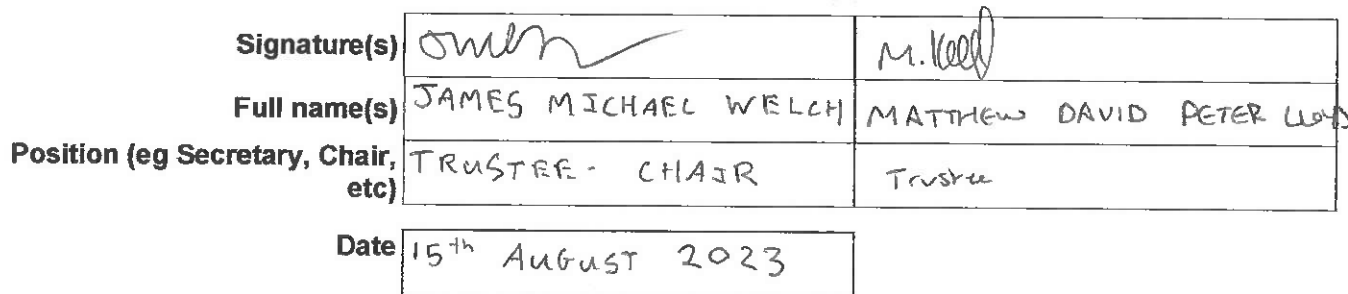 Signature(s) M.
Full name(s) JAMES MICHAEL WELCH MATTHEW DAVID PETER LLOYD
Position (eg Secretary, Chair, TRUSTEE - CHAIR Trustee
etc)
Date 15th AUGUST 2023